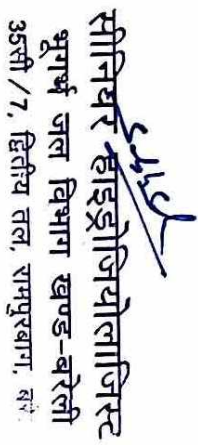 सीनियर हाइड्रोजियोलाजिस्ट
भूगर्भ जल विभाग खण्ड-बरेली
35सी/7, द्वितीय तल, रामपुरबाग,